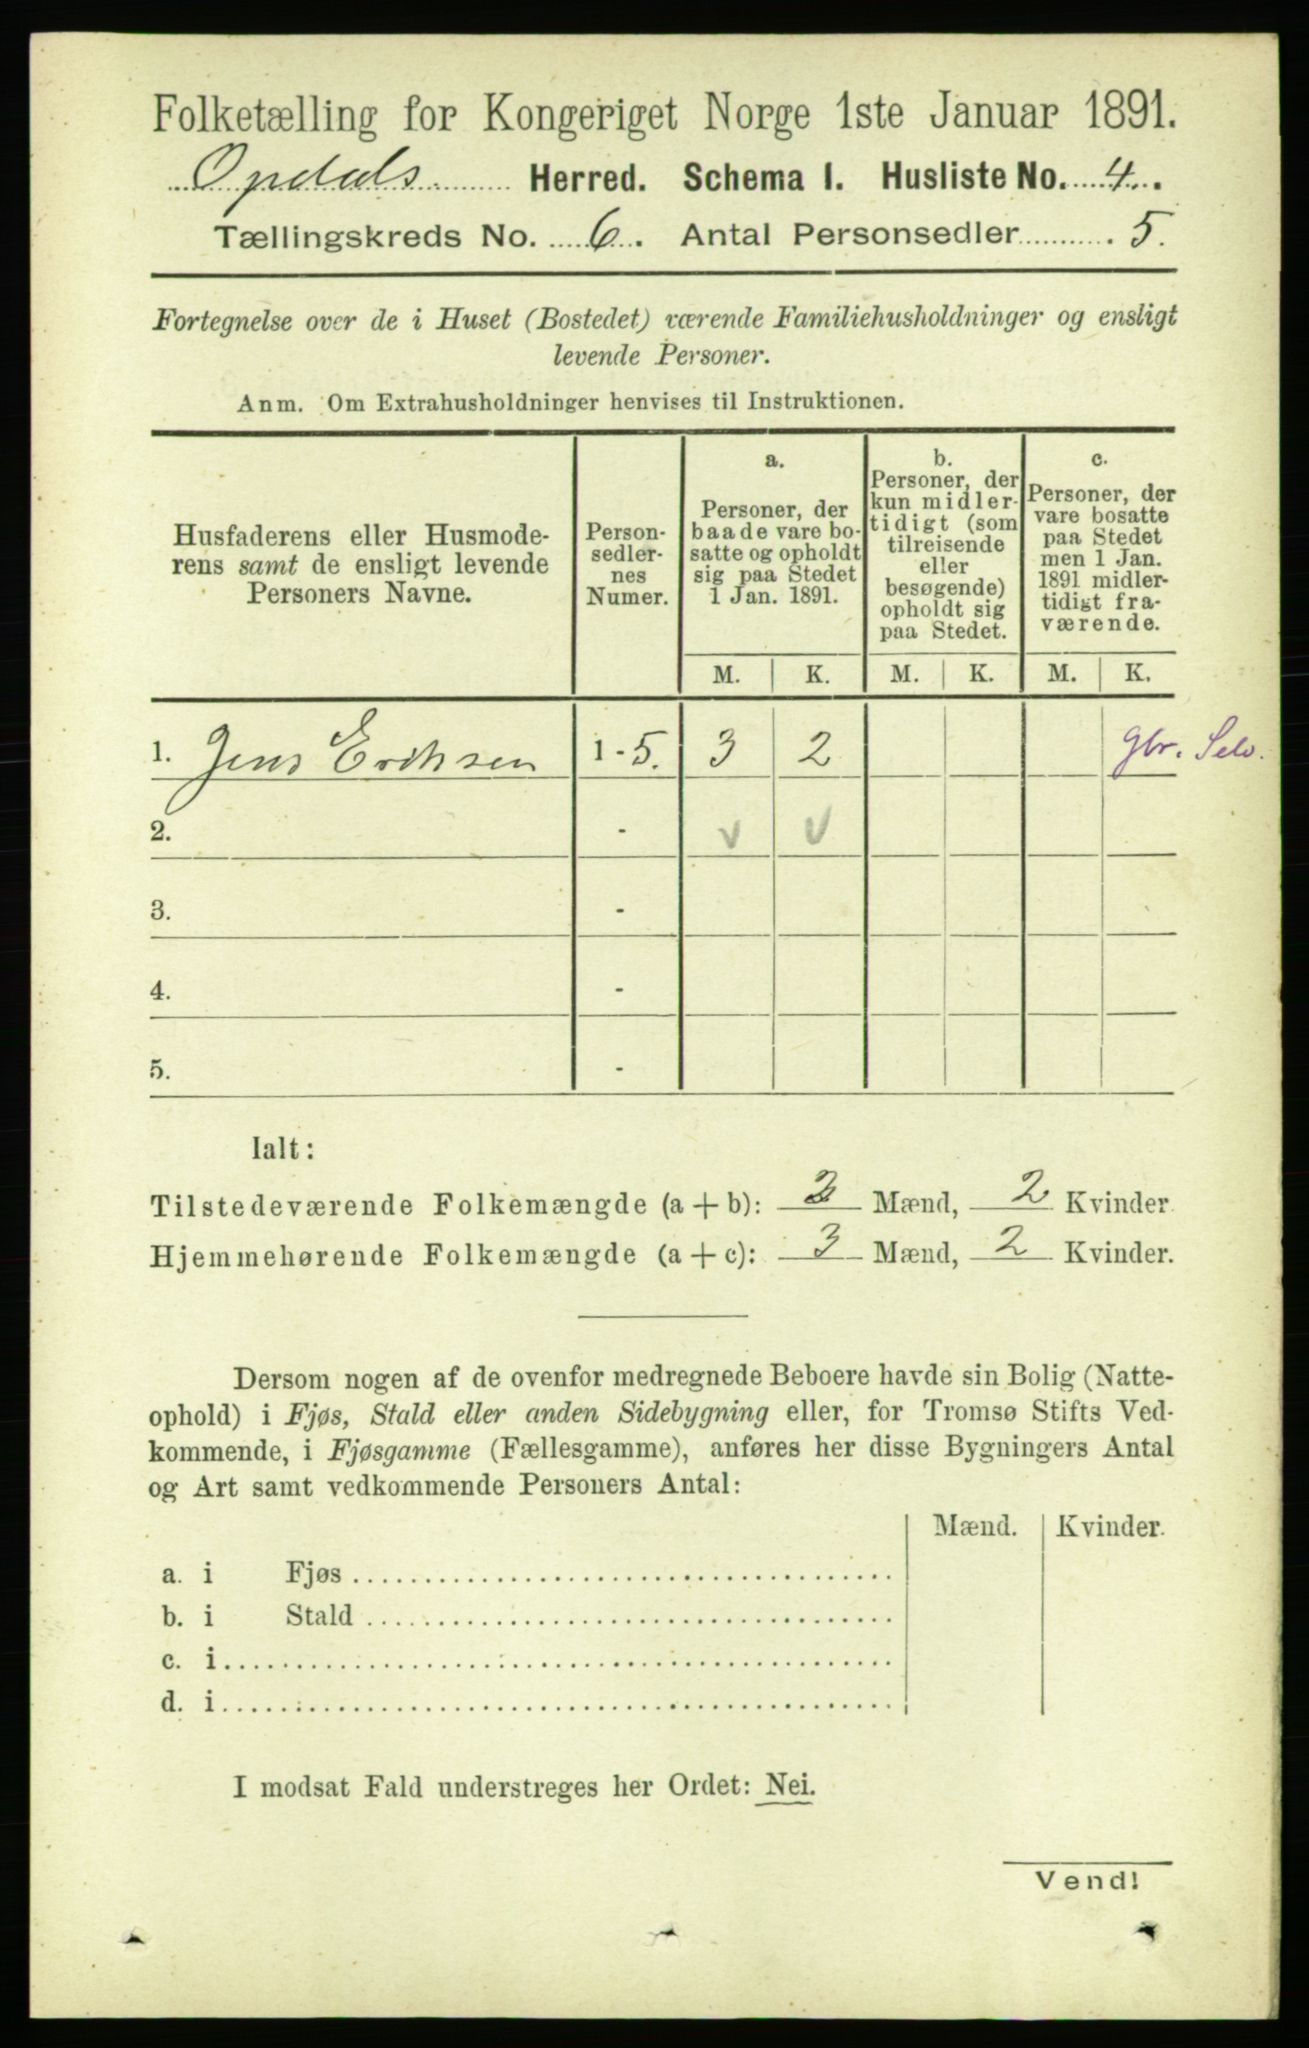 Folketælling for Kongeriget Norge 1ste Januar 1891.
Opdals Herred. Schema I. Husliste No. 4.
Tællingskreds No. 6. Antal Personsedler 5.
Fortegnelse over de i Huset (Bostedet) værende Familiehusholdninger og ensligt
levende Personer.
Anm. Om Extrahusholdninger henvises til Instruktionen.
Husfaderens eller Husmode-
rens samt de ensligt levende
Personers Navne.
Person-
sedler-
nes
Numer.
a.
Personer, der
baade vare bo-
satte og opholdt
sig paa Stedet
1 Jan. 1891.
b.
Personer, der
kun midler-
tidigt (som
tilreisende
eller
besøgende)
opholdt sig
paa Stedet.
c.
Personer, der
vare bosatte
paa Stedet
men 1 Jan.
1891 midler-
tidigt fra-
værende.
M. K. M. K. M. K.
1. Jens Eriksen 1 - 5. 3 2 Gbr. Selv.
2. - v v
3. -
4. -
5. -
Ialt:
Tilstedeværende Folkemængde (a + b): 3 Mænd, 2 Kvinder
Hjemmehørende Folkemængde (a + c): 3 Mænd, 2 Kvinder.
Dersom nogen af de ovenfor medregnede Beboere havde sin Bolig (Natte-
ophold) i Fjøs, Stald eller anden Sidebygning eller, for Tromsø Stifts Ved-
kommende, i Fjøsgamme (Fællesgamme), anføres her disse Bygningers Antal
og Art samt vedkommende Personers Antal:
Mænd. Kvinder.
a. i Fjøs
b. i Stald
c. i
d. i
I modsat Fald understreges her Ordet: Nei.
Vend!